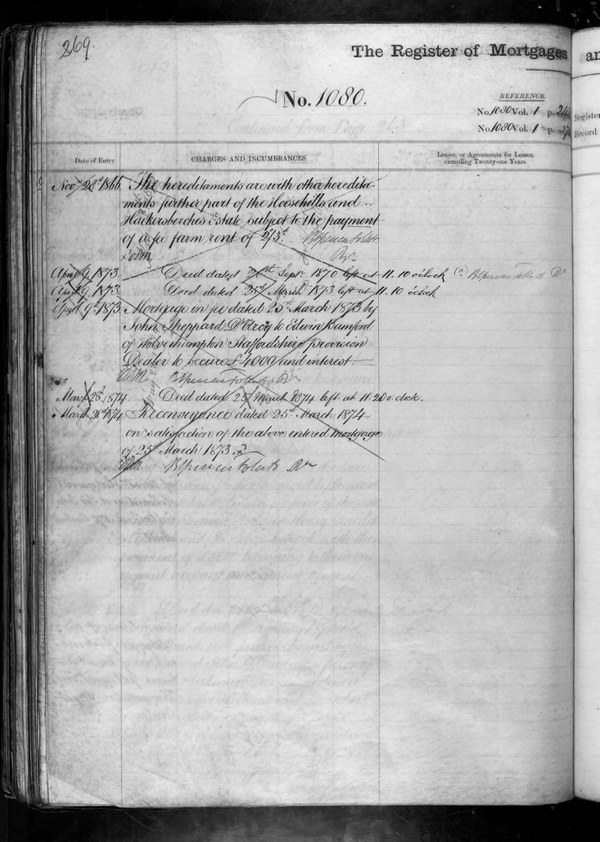 269.
The Register of Mortgages
an
No. 1080.
REFERENCE.
No. 1080 Vol. 1 p.
No. 1080 Vol. 1 p.
Register
Record
Date of Entry
CHARGES AND INCUMBRANCES
Leases, or Agreements for Leases, exceeding Twenty-one Years
Nov 28th 1866 The hereditaments are with other heredita-
ments further part of the Goosehills and
Hackersberches Estate subject to the payment
of a fee farm rent of
April 9. 1873. Deed dated Sept. 1870 left at 11.10 o'clock
April 9. 1873. Deed dated 25th March 1873 left at 11.10 o'clock
April 9th 1873 Mortgage in fee dated 25th March 1873 by
John Sheppard D'Orcy to Edwin Bamford
of Wolverhampton Staffordshire provision
Dealer to secure £4000 and interest.
March 28th 1874 Deed dated 25th March 1874 left at 11.20 o'clock.
March 28th 1874 Reconveyance dated 25th March 1874
on satisfaction of the above entered mortgage
of 25th March 1873.